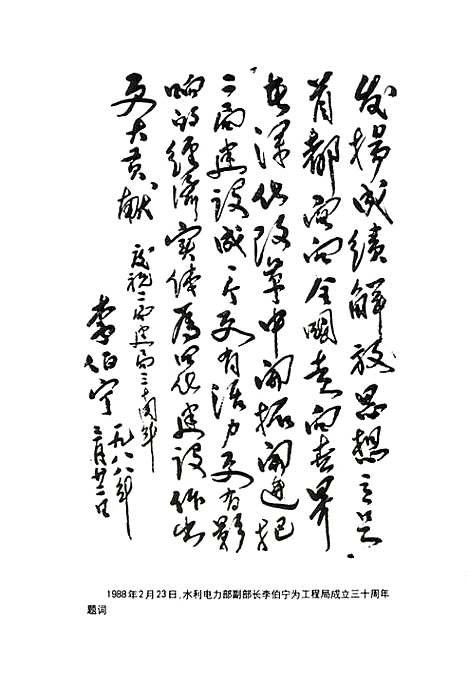 发扬成绩解放思想立足
首都面向全国走向世界
在深化改革中开拓前进把
二局建设成一个更有活力更有影
响的经济实体为四化建设作出
更大贡献
庆祝二局建局三十周年
李伯宁
一九八八年
二月廿日
1988年2月23日,水利电力部副部长李伯宁为工程局成立三十周年
题词